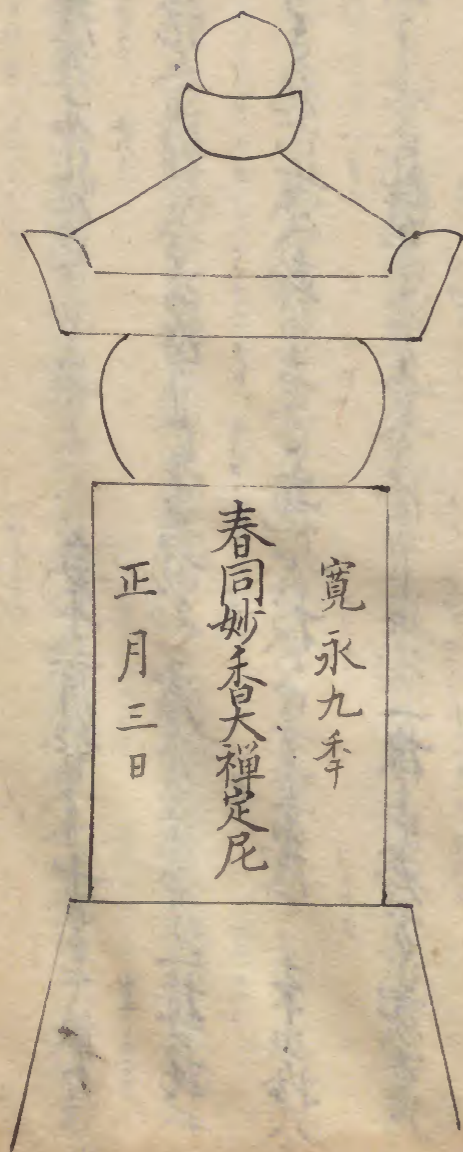 寛永九秊
春同妙香大禅定尼
正月三日